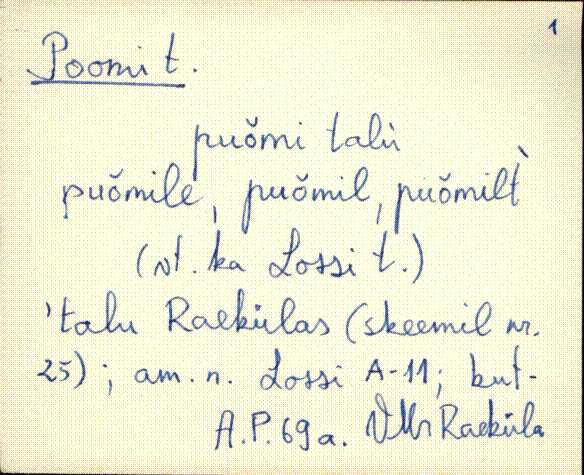 1
Poomi t.
puǒmi talù
puǒmile, puǒmil, puǒmilt̀
(vt. ka Lossi t.)
'talu Raekülas (skeemil nr.
25); am. n. Lossi A-11; kut-
A.P. 69 a. VMr Raeküla